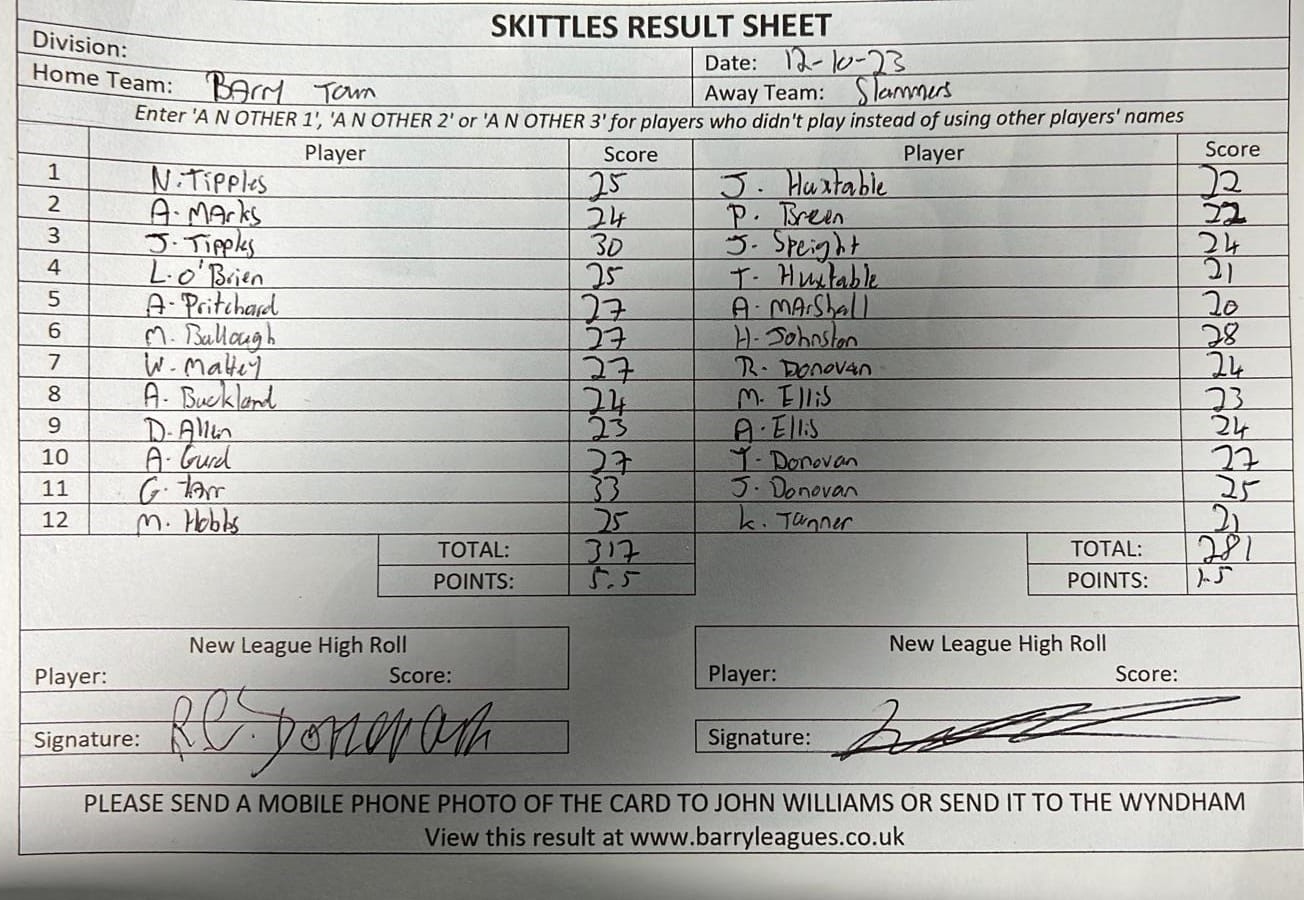 SKITTLES RESULT SHEET
Division:
Date: 12-10-23
Home Team: BArry Town
Away Team: Slammers
Enter 'A N OTHER 1', 'A N OTHER 2' or 'A N OTHER 3' for players who didn't play instead of using other players' names
Player Score Player Score
1 N. Tipples 25 J. Huxtable 22
2 A. MArks 24 P. Breen 22
3 J. Tipples 30 J. Speight 24
4 L. O'Brien 25 T. Huxtable 21
5 A. Pritchard 27 A. MArshall 20
6 M. Bullough 27 H. Johnston 28
7 W. Mattey 27 R. Donovan 24
8 A. Buckland 24 M. Ellis 23
9 D. Allen 23 A. Ellis 24
10 A. Gurd 27 T. Donovan 27
11 G. TArr 33 J. Donovan 25
12 M. Hobbs 25 K. Tanner 21
TOTAL: 317 TOTAL: 281
POINTS: 5.5 POINTS: 1.5
New League High Roll New League High Roll
Player: Score: Player: Score:
Signature: R.C. Donovan Signature:
PLEASE SEND A MOBILE PHONE PHOTO OF THE CARD TO JOHN WILLIAMS OR SEND IT TO THE WYNDHAM
View this result at www.barryleagues.co.uk